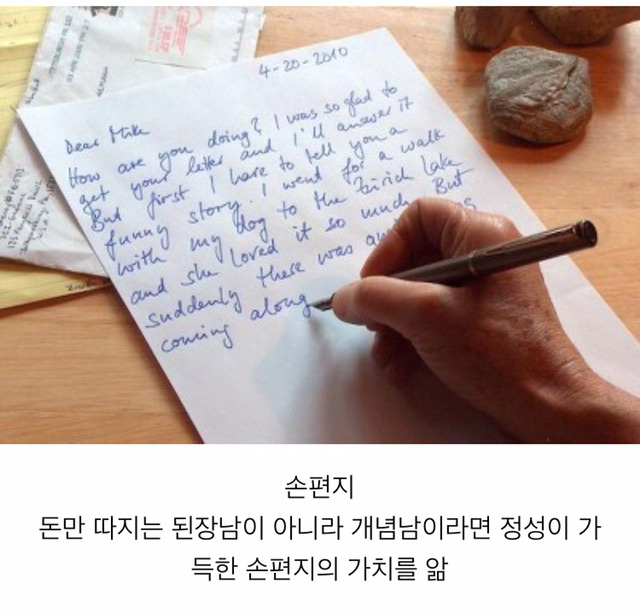 4-20-2010
Dear Mike
How are you doing? I was so glad to
get your letter and I'll answer it
But first I have to tell you a
funny story. I went for a walk
with my dog to the Zürich Lake
and she loved it so much. But
suddenly there was
coming along
손편지
돈만 따지는 된장남이 아니라 개념남이라면 정성이 가
득한 손편지의 가치를 앎